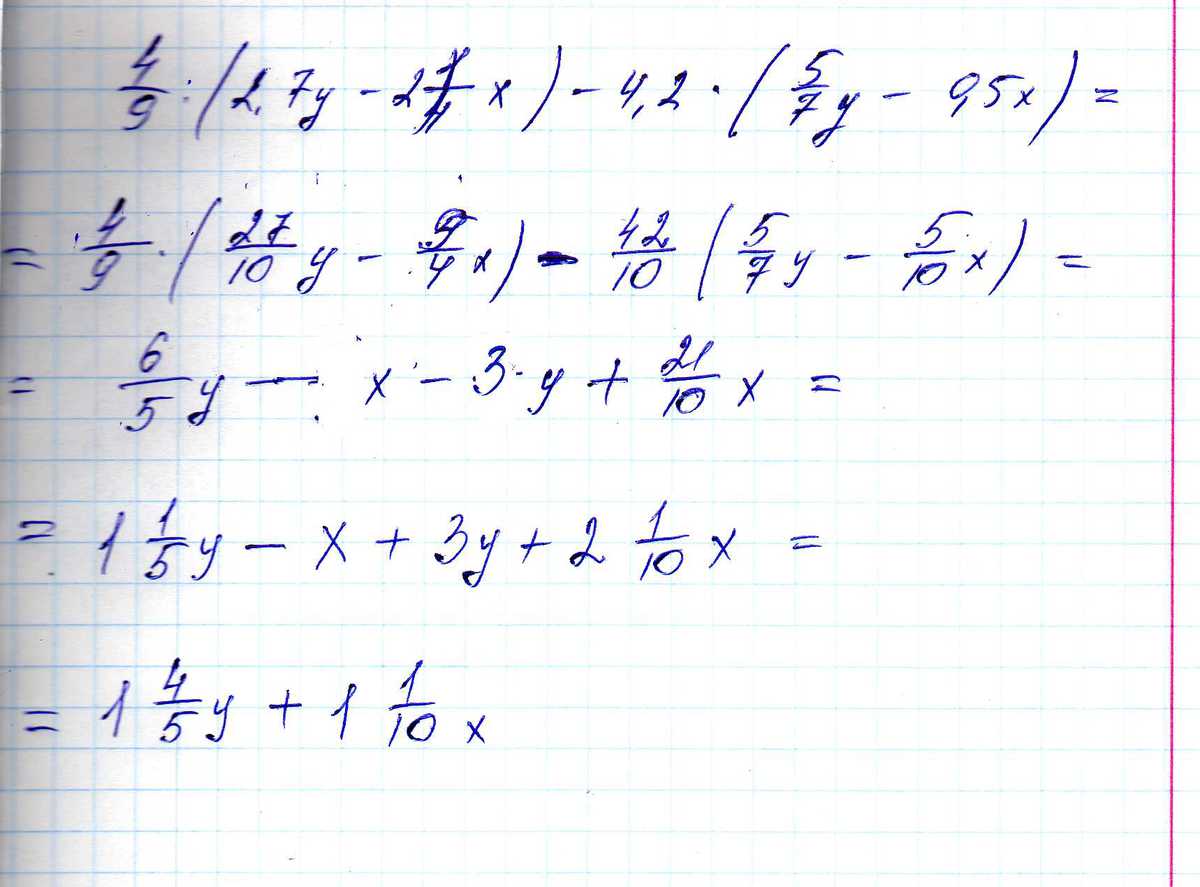 4/9 : (2,7y - 2 1/4 x) - 4,2 · (5/7 y - 0,5x) =
= 4/9 · (27/10 y - 9/4 x) - 42/10 (5/7 y - 5/10 x) =
= 6/5 y - x - 3·y + 21/10 x =
= 1 1/5 y - x + 3y + 2 1/10 x =
= 1 4/5 y + 1 1/10 x